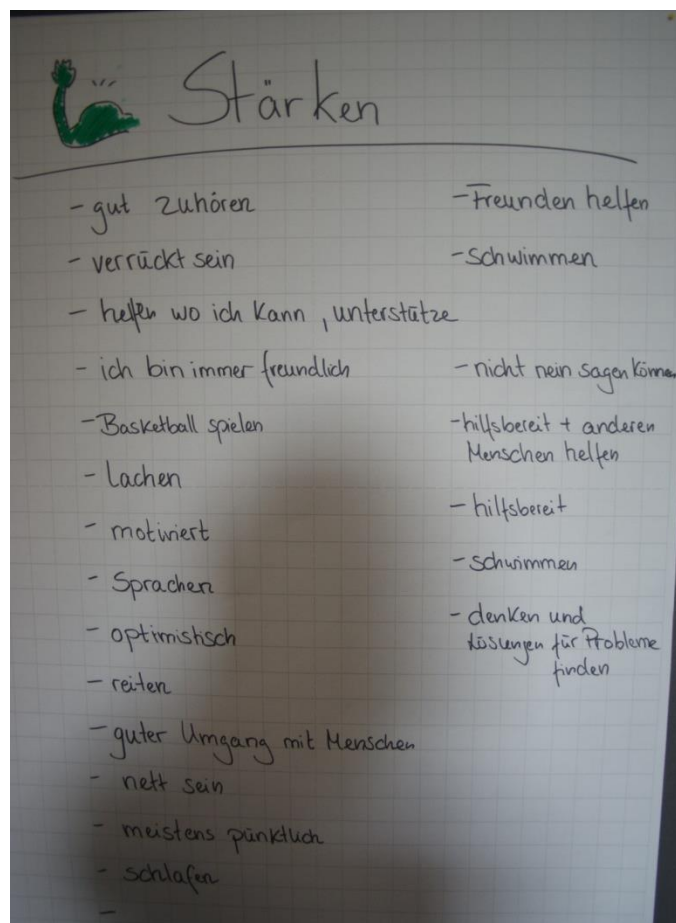 Stärken
- gut zuhören
- verrückt sein
- helfen wo ich kann, unterstütze
- ich bin immer freundlich
- Basketball spielen
- Lachen
- motiviert
- Sprachen
- optimistisch
- reiten
- guter Umgang mit Menschen
- nett sein
- meistens pünktlich
- schlafen
-
- Freunden helfen
- Schwimmen
- nicht nein sagen können
- hilfsbereit + anderen
Menschen helfen
- hilfsbereit
- schwimmen
- denken und
Lösungen für Probleme
finden